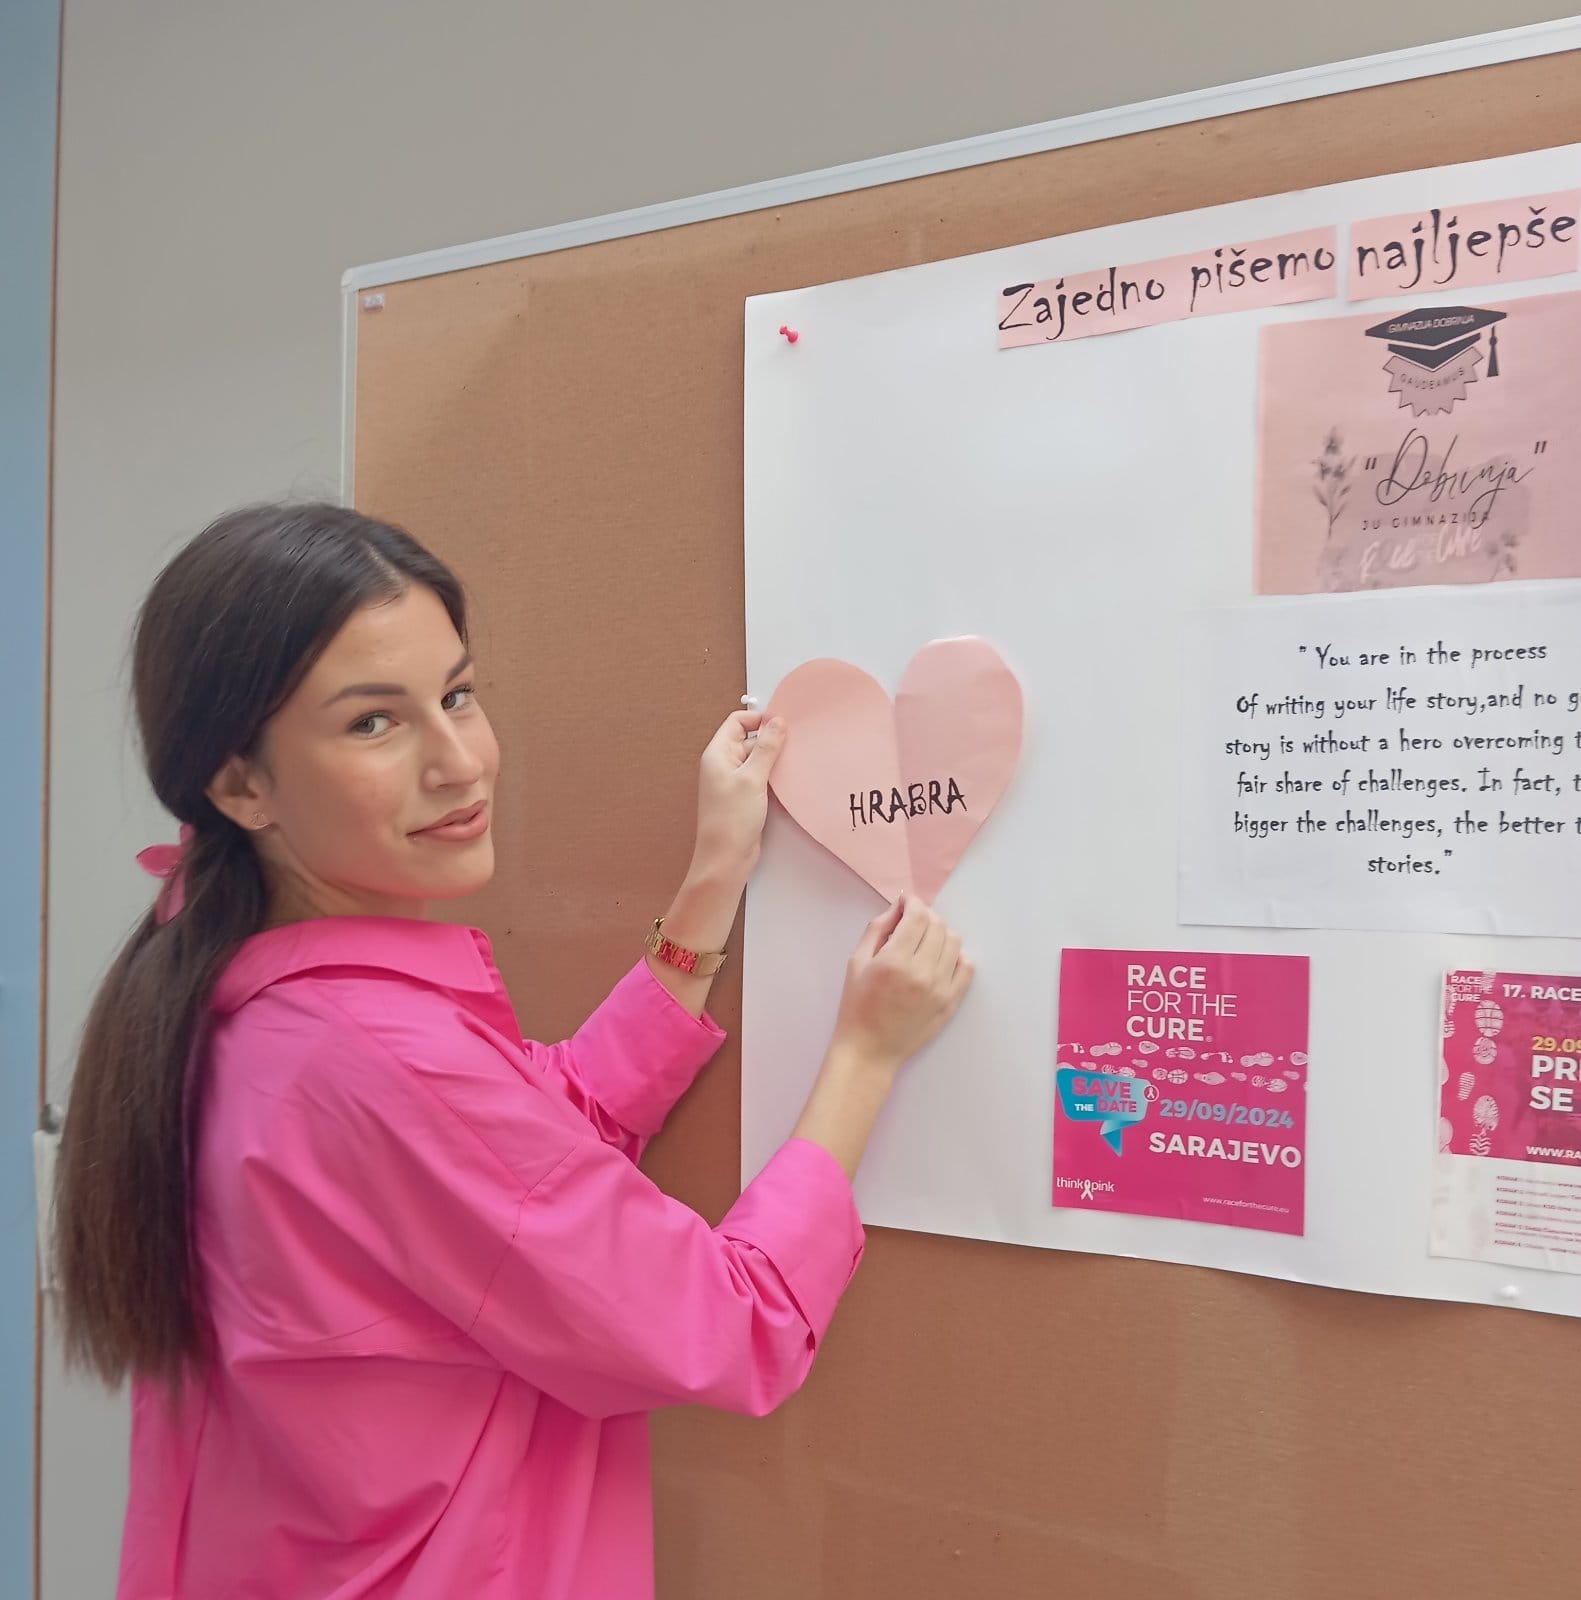 Zajedno pišemo najljepše
GIMNAZIJA DOBRINJA
GAUDEAMUS
"Dobrinja"
JU GIMNAZIJA
Race
Cure
HRABRA
" You are in the process
Of writing your life story,and no g
story is without a hero overcoming t
fair share of challenges. In fact, t
bigger the challenges, the better t
stories."
RACE
FOR THE
CURE®
SAVE
THE DATE
29/09/2024
SARAJEVO
think pink
www.raceforthecure.eu
RACE
FOR THE
CURE
17. RACE
29.09
PRI
SE
WWW.RA